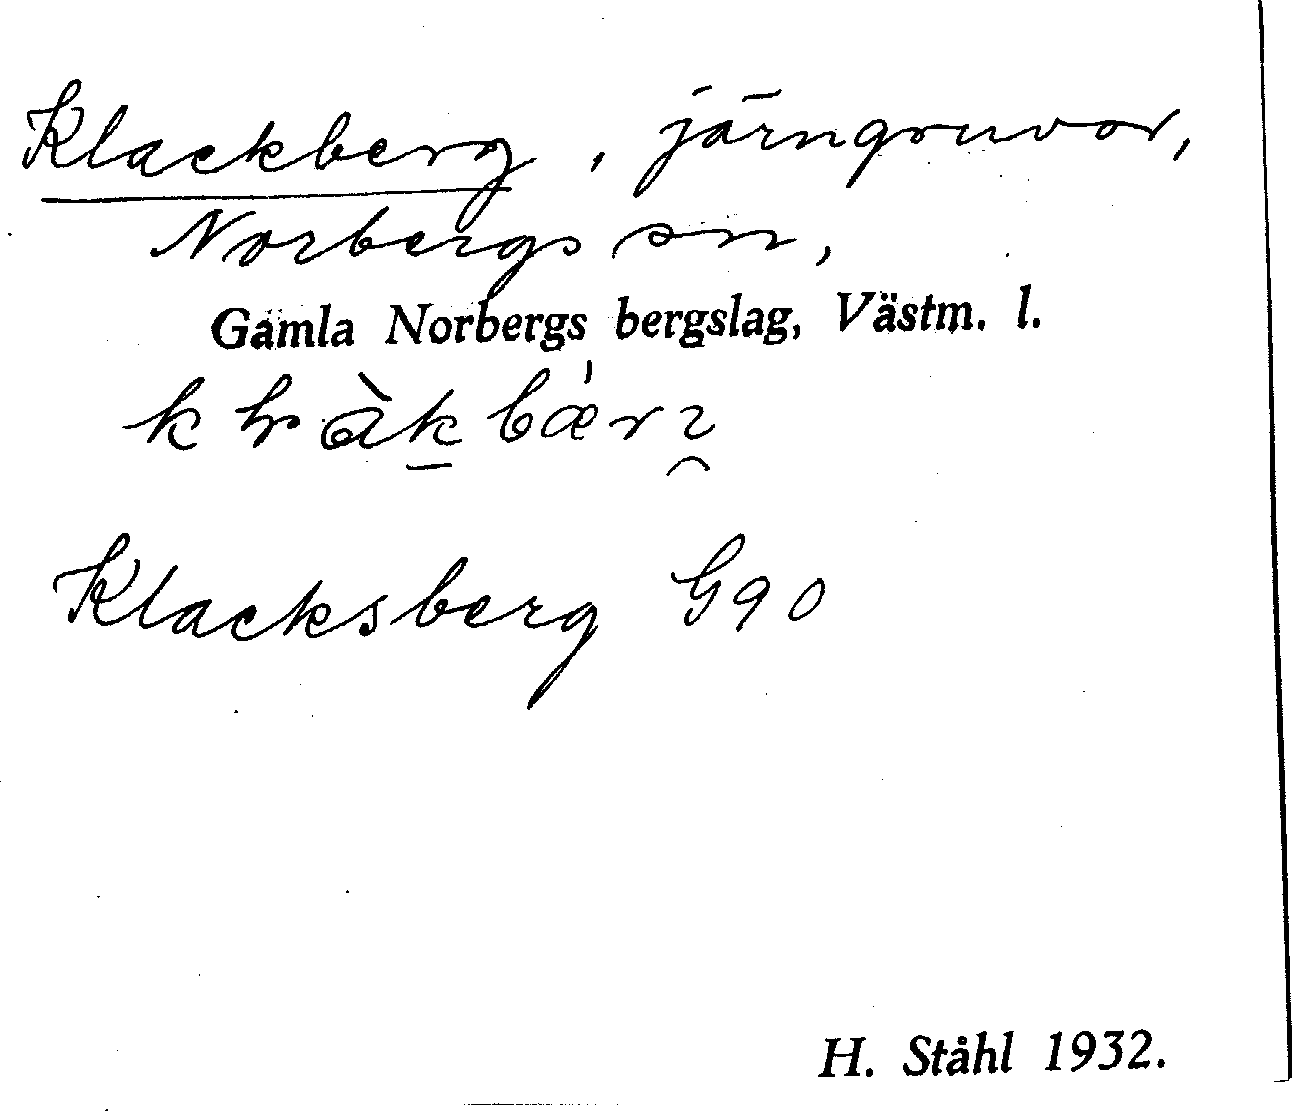 Klackberg, järngruvor,
Norbergs sn,
Gamla Norbergs bergslag, Västm. l.
Klacksberg G90
H. Ståhl 1932.